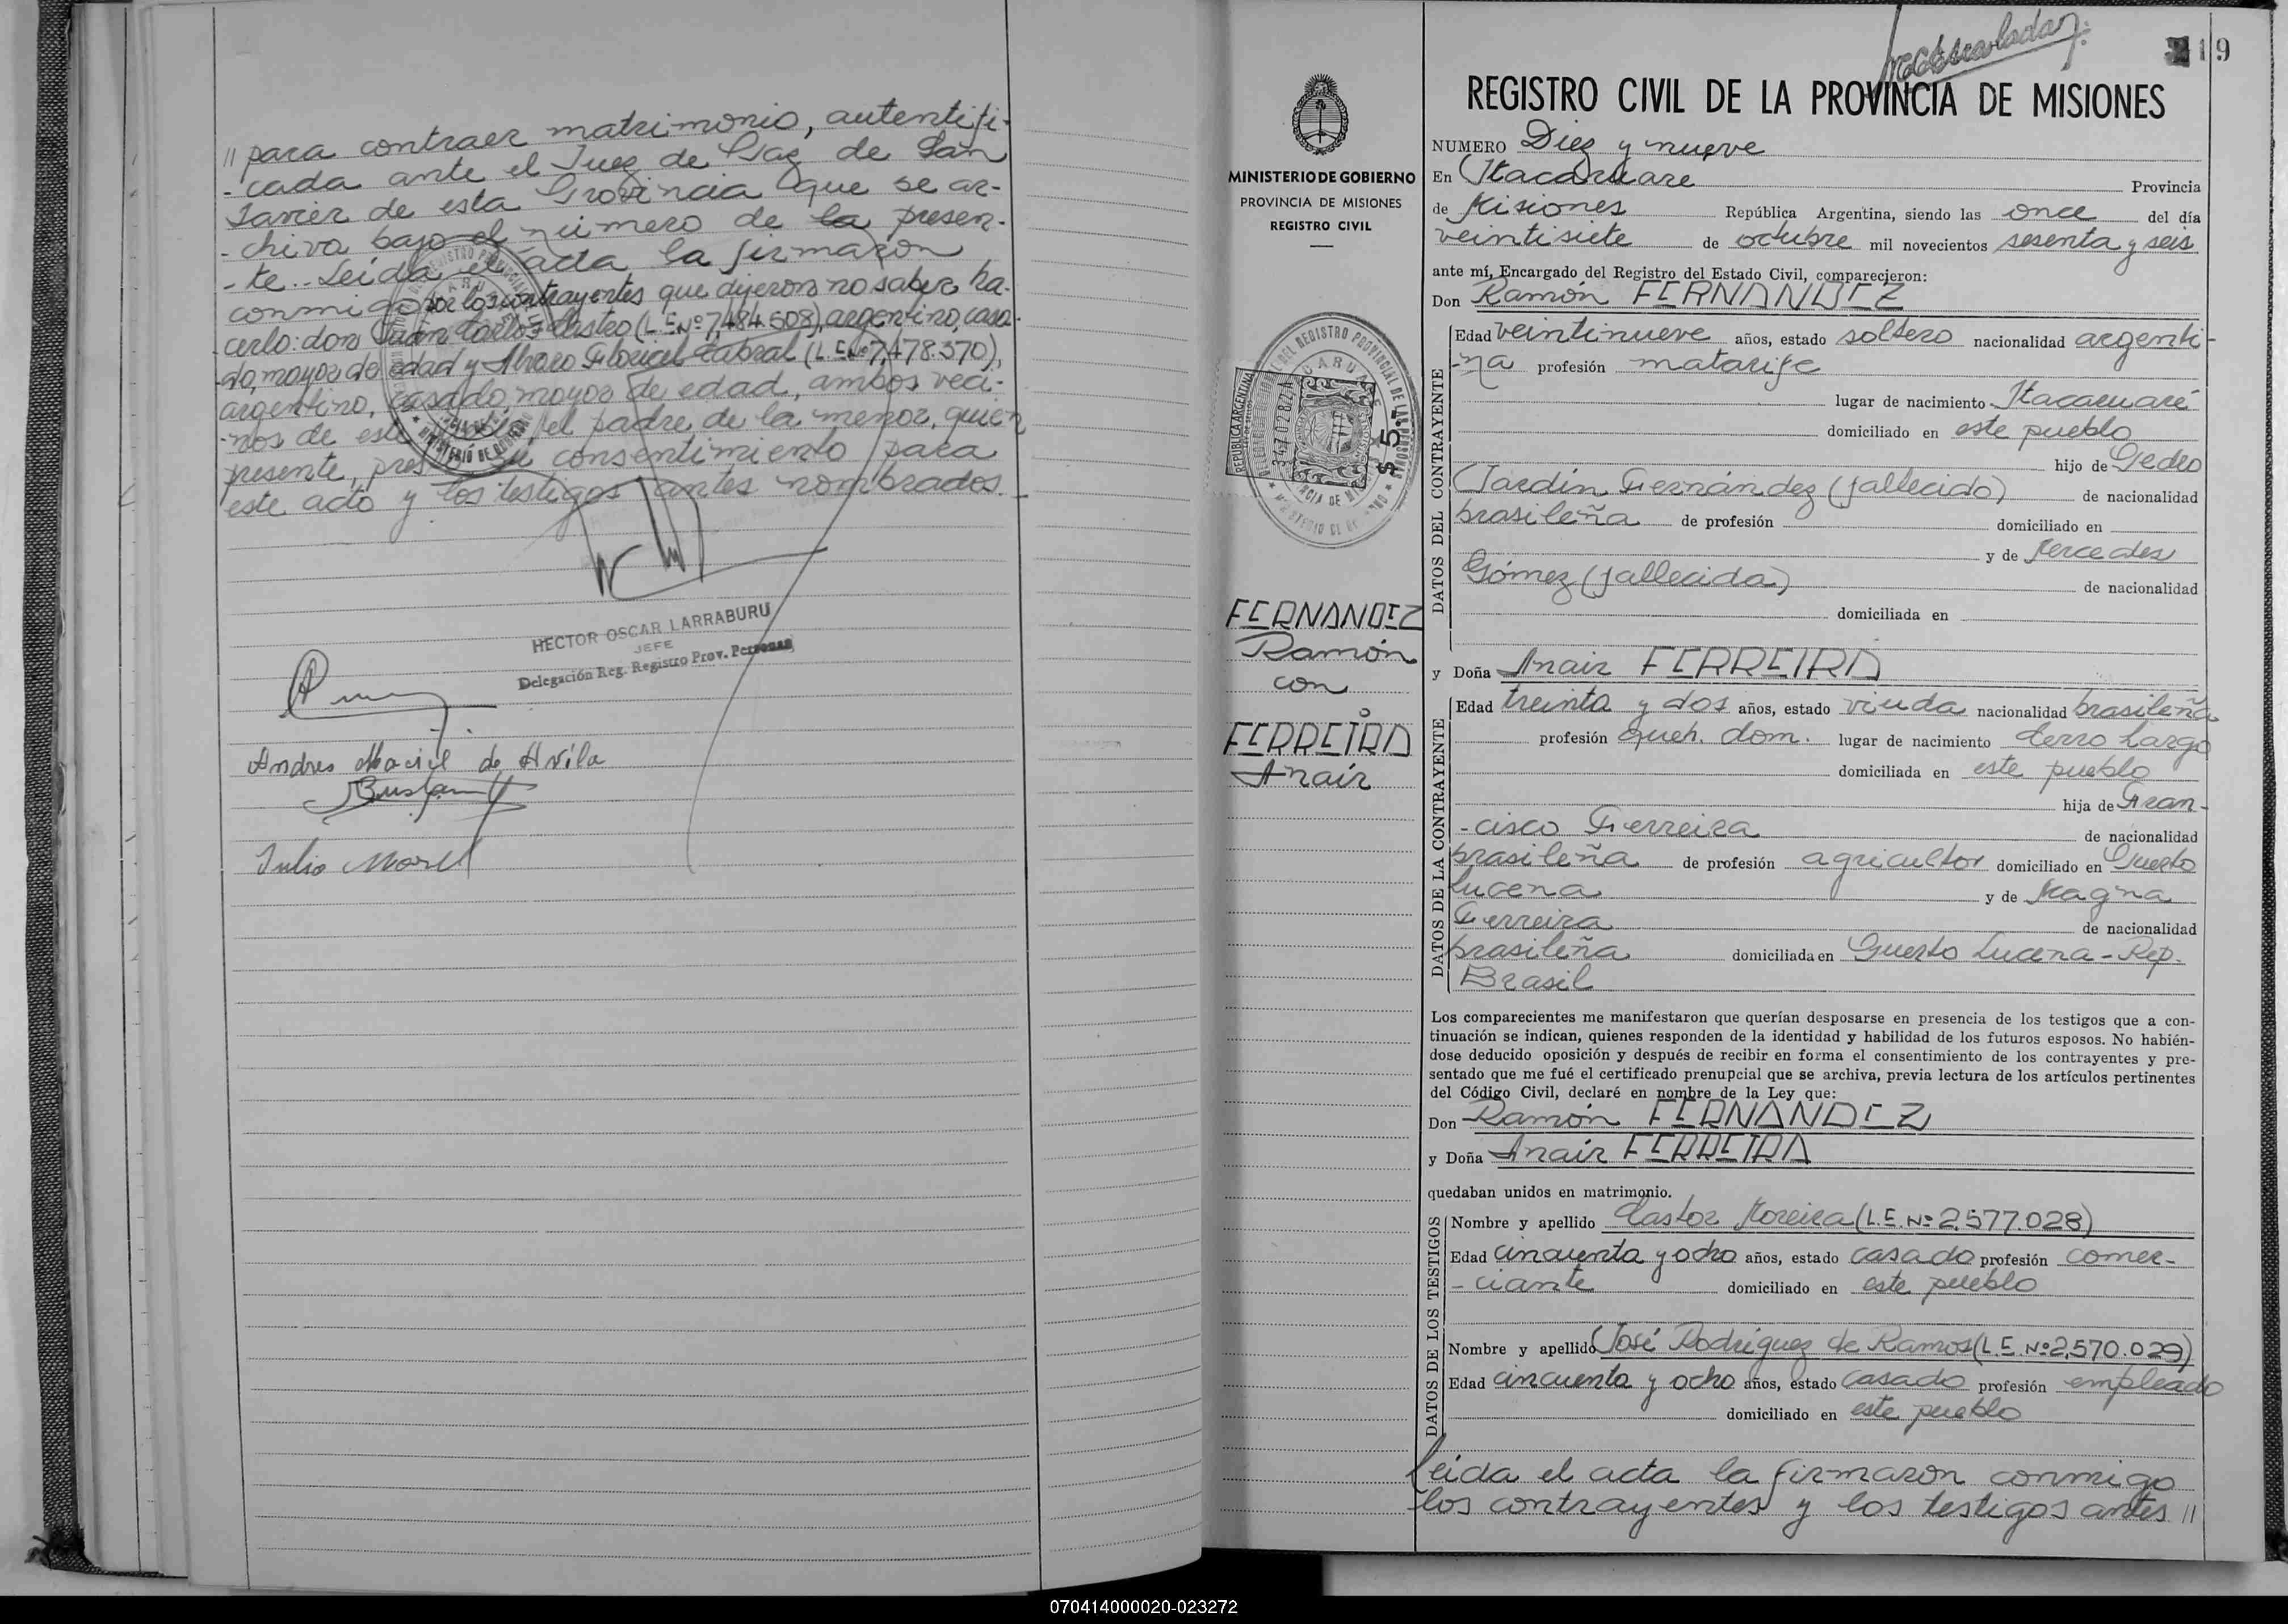 // para contraer matrimonio, autentifi-
-cada ante el Juez de Paz de San
Javier de esta Provincia que se ar-
-chiva bajo el número de la presen-
-te.. Leída el acta la firmaron
conmigo por los contrayentes que dijeron no saber ha-
cerlo: don Juan Carlos Castro (L.E.Nº 7,484.508), argentino, casa-
-do, mayor de edad y Alvaro Floricel Cabral (L.E.Nº 7,478.370),
argentino, casado, mayor de edad, ambos veci-
-nos de este pueblo, el padre de la menor, quien
presente, prestó su consentimiento para
este acto y los testigos antes nombrados.
HECTOR OSCAR LARRABURU
JEFE
Delegación Reg. Registro Prov. Personas
Andres Maciel de Avila
Julio Morel
19
REGISTRO CIVIL DE LA PROVINCIA DE MISIONES
MINISTERIO DE GOBIERNO
PROVINCIA DE MISIONES
REGISTRO CIVIL
REPUBLICA ARGENTINA
$ 5.-
FERNANDEZ
Ramón
con
FERREIRA
Anair
NUMERO Diez y nueve
En Itacaruare Provincia
de Misiones República Argentina, siendo las once del día
veintisiete de octubre mil novecientos sesenta y seis
ante mí, Encargado del Registro del Estado Civil, comparecieron:
Don Ramón FERNANDEZ
DATOS DEL CONTRAYENTE
Edad veintinueve años, estado soltero nacionalidad argenti-
-na profesión matarife
lugar de nacimiento Itacaruaré
domiciliado en este pueblo
hijo de Pedro
Jardín Fernández (fallecido) de nacionalidad
brasileña de profesión domiciliado en
y de Mercedes
Gómez (fallecida) de nacionalidad
domiciliada en
y Doña Anair FERREIRA
DATOS DE LA CONTRAYENTE
Edad treinta y dos años, estado viuda nacionalidad brasileña
profesión queh. dom. lugar de nacimiento Cerro Largo
domiciliada en este pueblo
hija de Fran-
-cisco Ferreira de nacionalidad
brasileña de profesión agricultor domiciliado en Puerto
Lucena y de Magna
Ferreira de nacionalidad
brasileña domiciliada en Puerto Lucena - Rep.
Brasil
Los comparecientes me manifestaron que querían desposarse en presencia de los testigos que a con-
tinuación se indican, quienes responden de la identidad y habilidad de los futuros esposos. No habién-
dose deducido oposición y después de recibir en forma el consentimiento de los contrayentes y pre-
sentado que me fué el certificado prenupcial que se archiva, previa lectura de los artículos pertinentes
del Código Civil, declaré en nombre de la Ley que:
Don Ramón FERNANDEZ
y Doña Anair FERREIRA
quedaban unidos en matrimonio.
DATOS DE LOS TESTIGOS
Nombre y apellido Castor Moreira (L.E. Nº 2,577.028)
Edad cincuenta y ocho años, estado casado profesión comer-
-ciante domiciliado en este pueblo
Nombre y apellido José Rodriguez de Ramos (L.E. Nº 2,570.029)
Edad cincuenta y ocho años, estado casado profesión empleado
domiciliado en este pueblo
Leída el acta la firmaron conmigo
los contrayentes y los testigos antes //
070414000020-023272